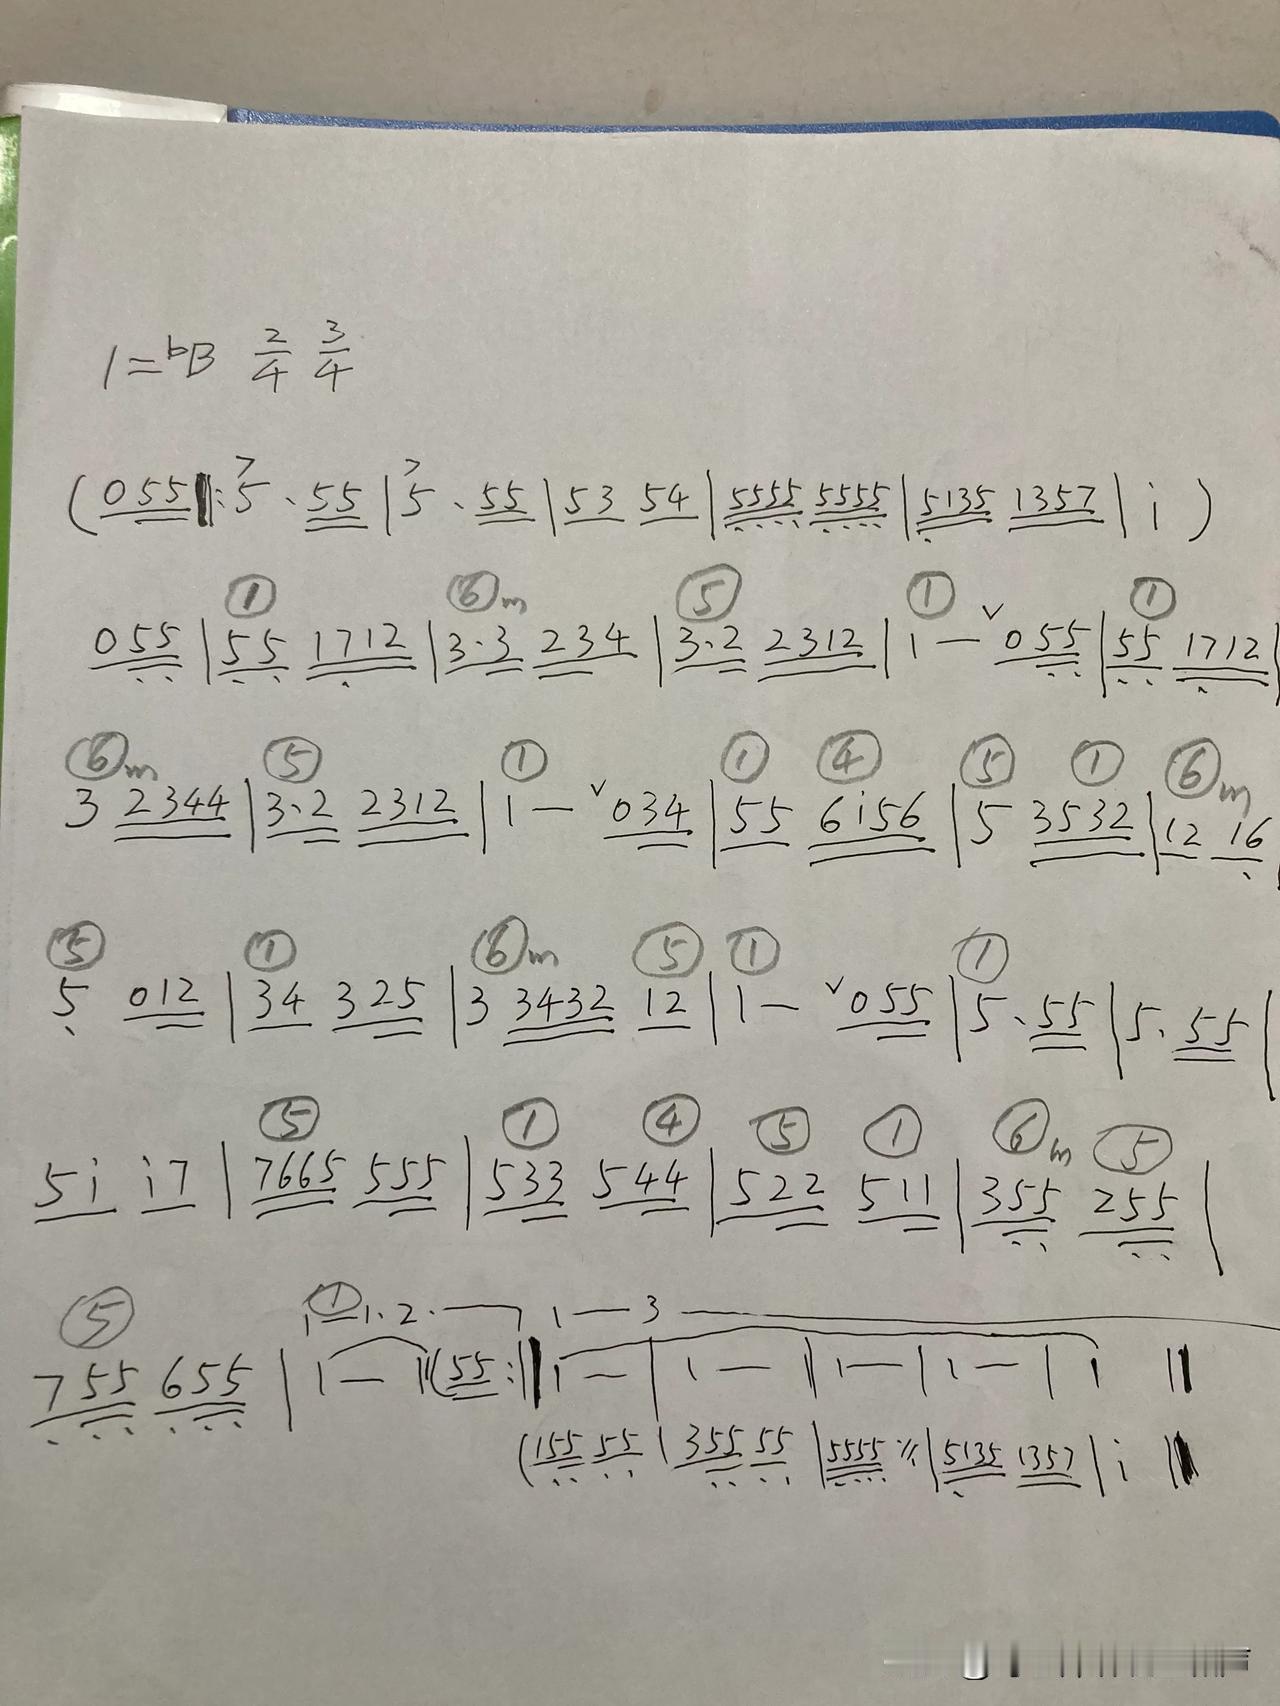 1=ᵇB 2/4 3/4
(055‖:5·55|5·55|53 54|5555 5555|5135 1357|i)
① ⑥m ⑤ ① ①
055|55 1712|3·3 234|3·2 2312|1— ᵛ055|55 1712|
⑥m ⑤ ① ① ④ ⑤ ① ⑥m
3 2344|3·2 2312|1— ᵛ034|55 6i56|5 3532|12 16
⑤ ① ⑥m ⑤ ① ①
5 012|34 325|3 3432 12|1— ᵛ055|5·55|5·55|
⑤ ① ④ ⑤ ① ⑥m ⑤
5i i7|7665 555|533 544|522 511|355 255|
⑤ ① 1·2· 1—3
755 655|1—‖(55:‖1—|1—‖1—|1—|1‖
(155 55|355 55|5555 〃|5135 1357|i‖